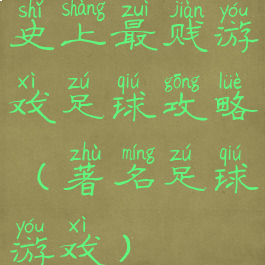 shǐ shàng zuì jiàn yóu
史上最贱游
xì zú qiú gōng lüè
戏足球攻略
zhù míng zú qiú
（著名足球
yóu xì
游戏）